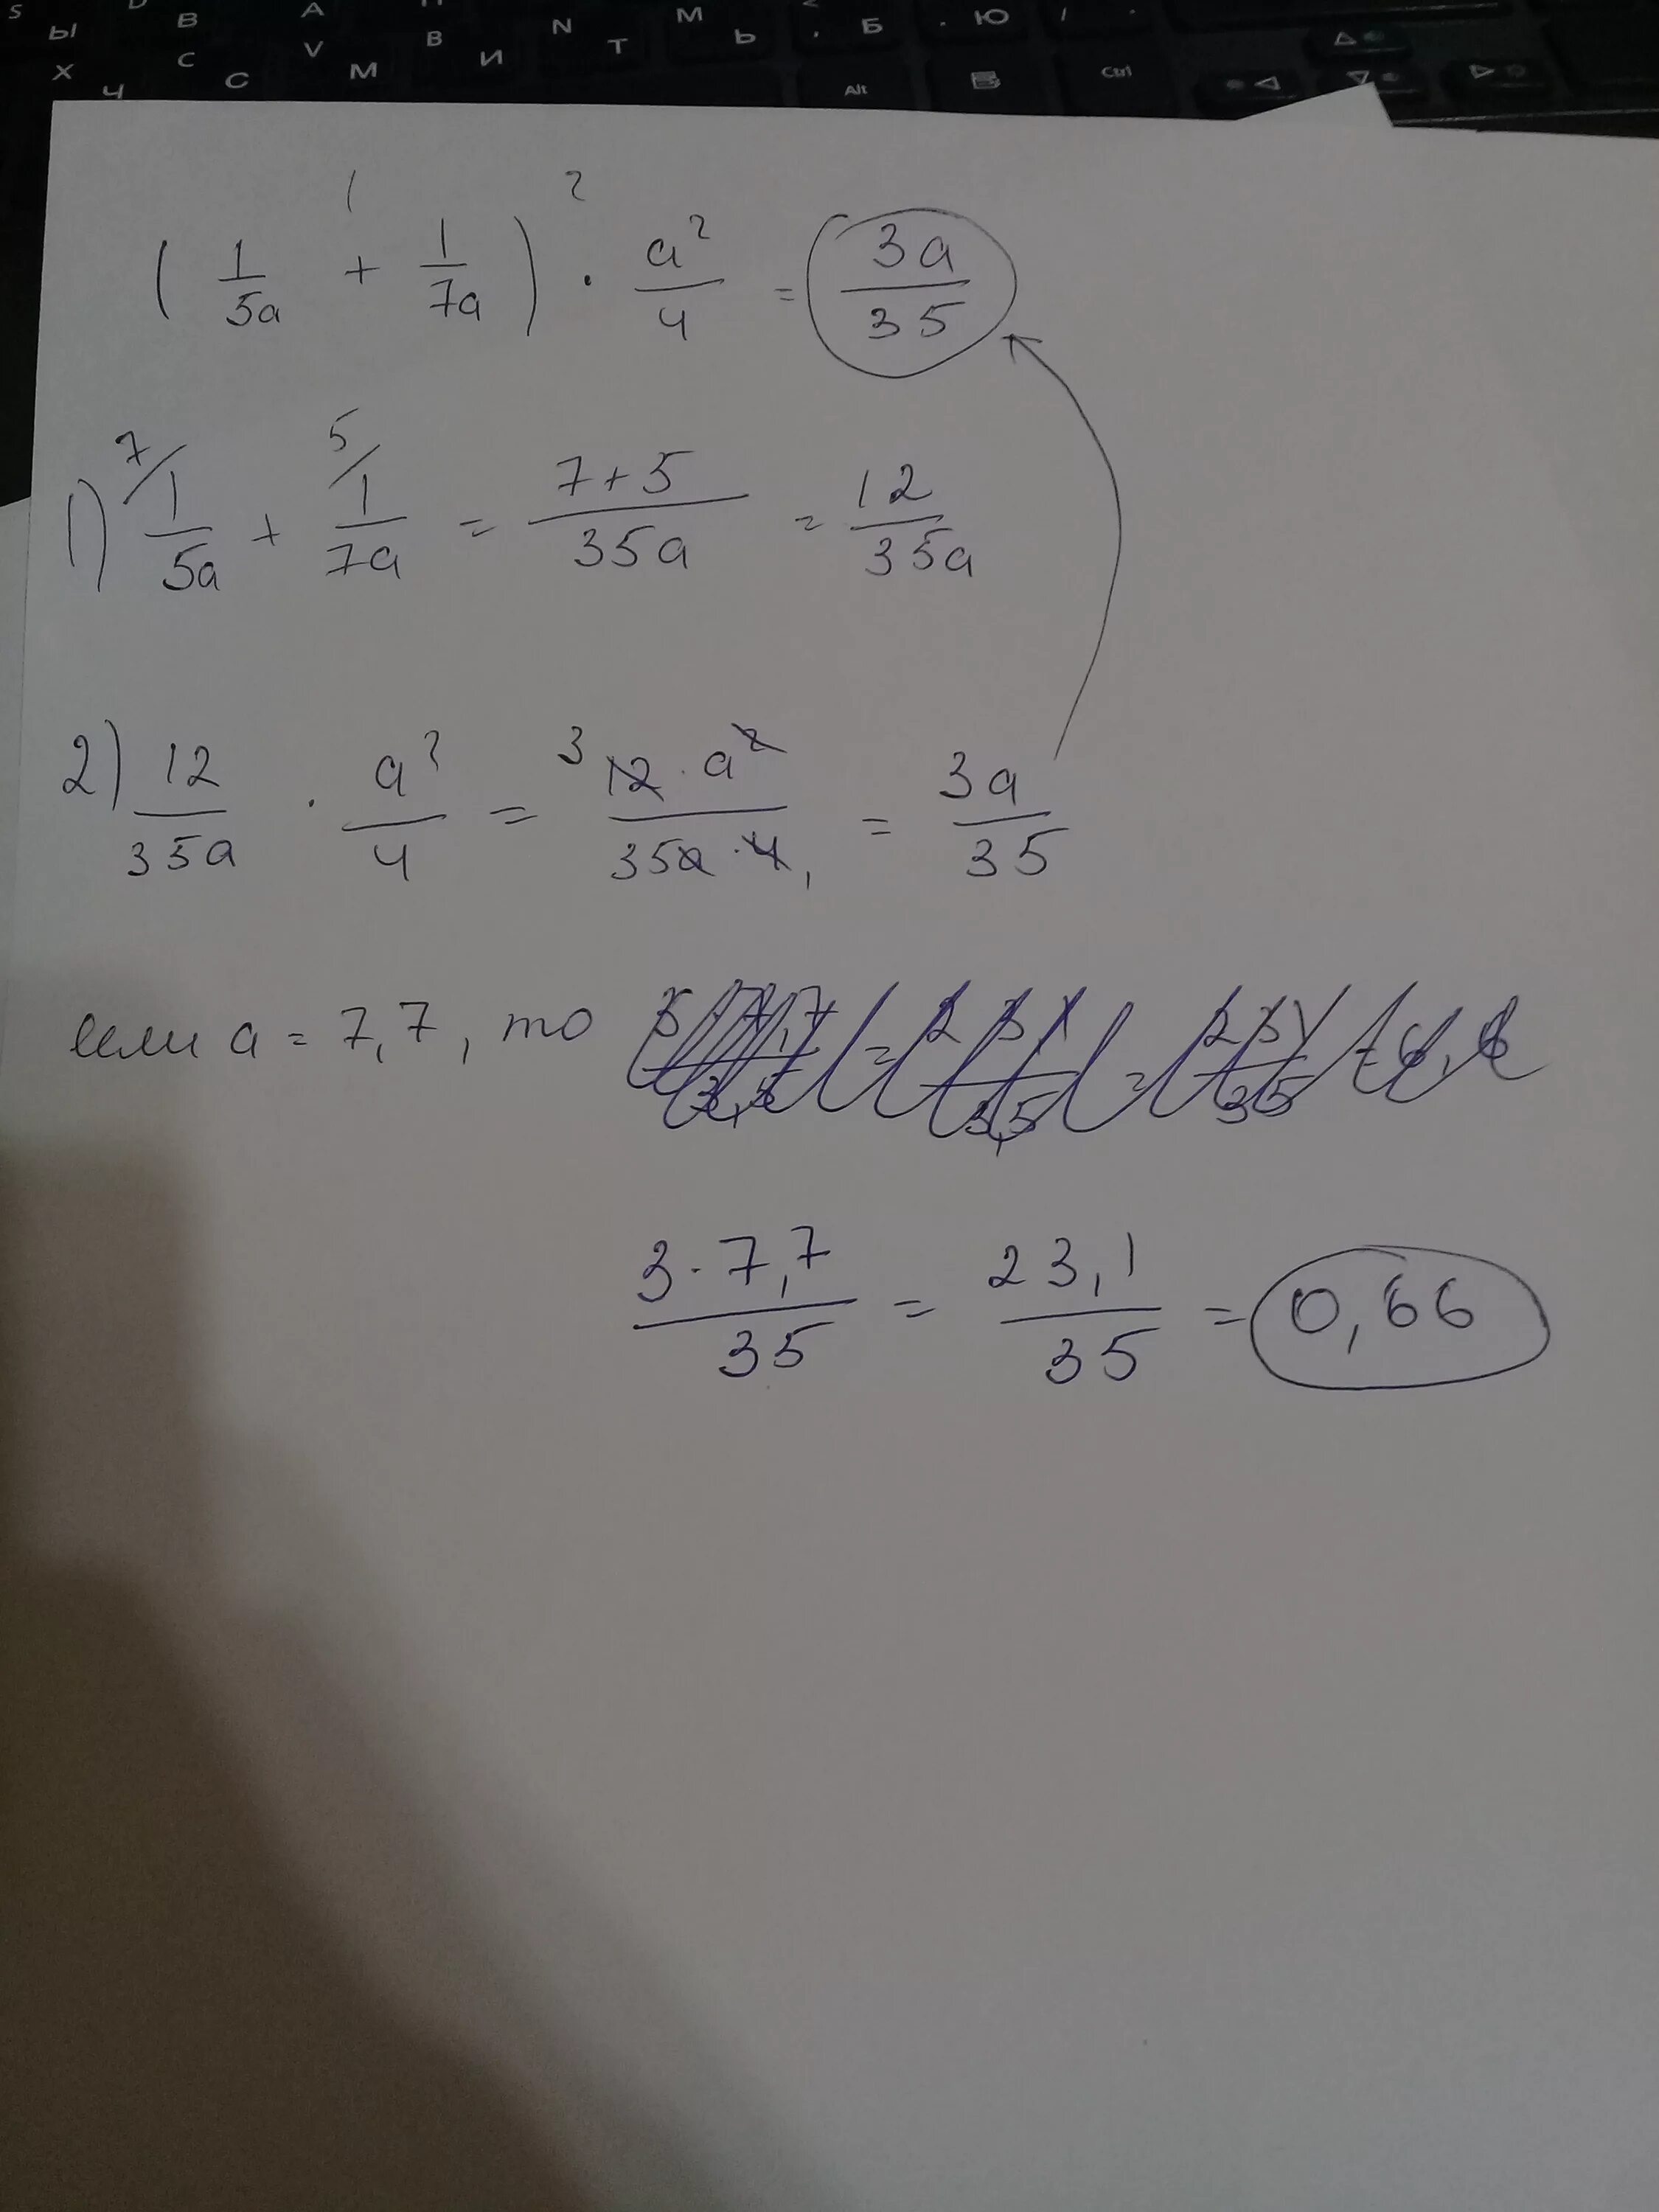 S Ы В А В N М Ь , Б . Ю / .
Х Ч С С V М И Т Alt Ctrl
1 2
( 1/5a + 1/7a ) · a²/4 = 3a/35
1) 7/ 1/5a + 5/ 1/7a = 7+5/35a = 12/35a
2) 12/35a · a²/4 = 3 12 · a²/35a · 4 1 = 3a/35
если a = 7,7, то
3·7,7/35 = 23,1/35 = 0,66